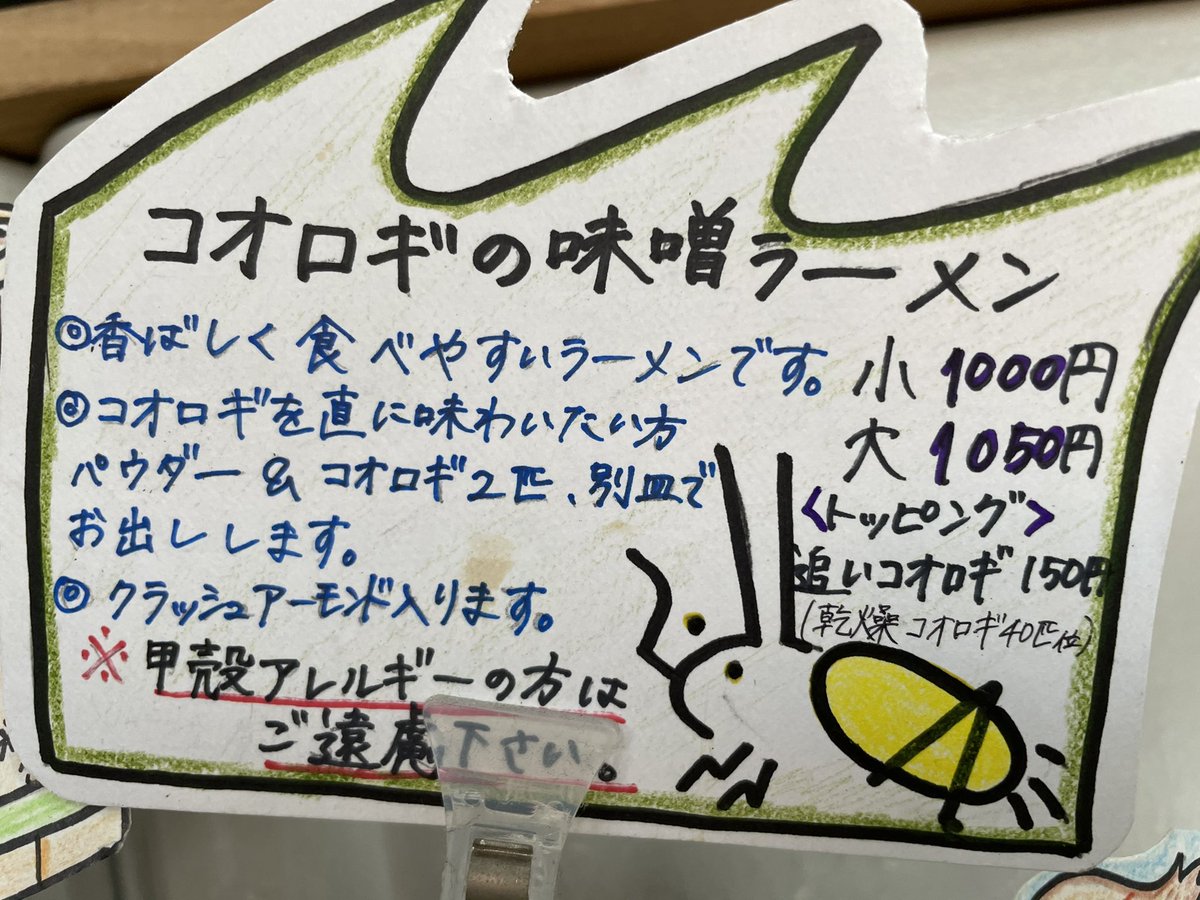 コオロギの味噌ラーメン
◎香ばしく食べやすいラーメンです。
◎コオロギを直に味わいたい方
パウダー&コオロギ2匹、別皿で
お出しします。
◎クラッシュアーモンド入ります。
※甲殻アレルギーの方は
ご遠慮下さい。
小1000円
大1050円
<トッピング>
追いコオロギ150円
(乾燥コオロギ40匹位)